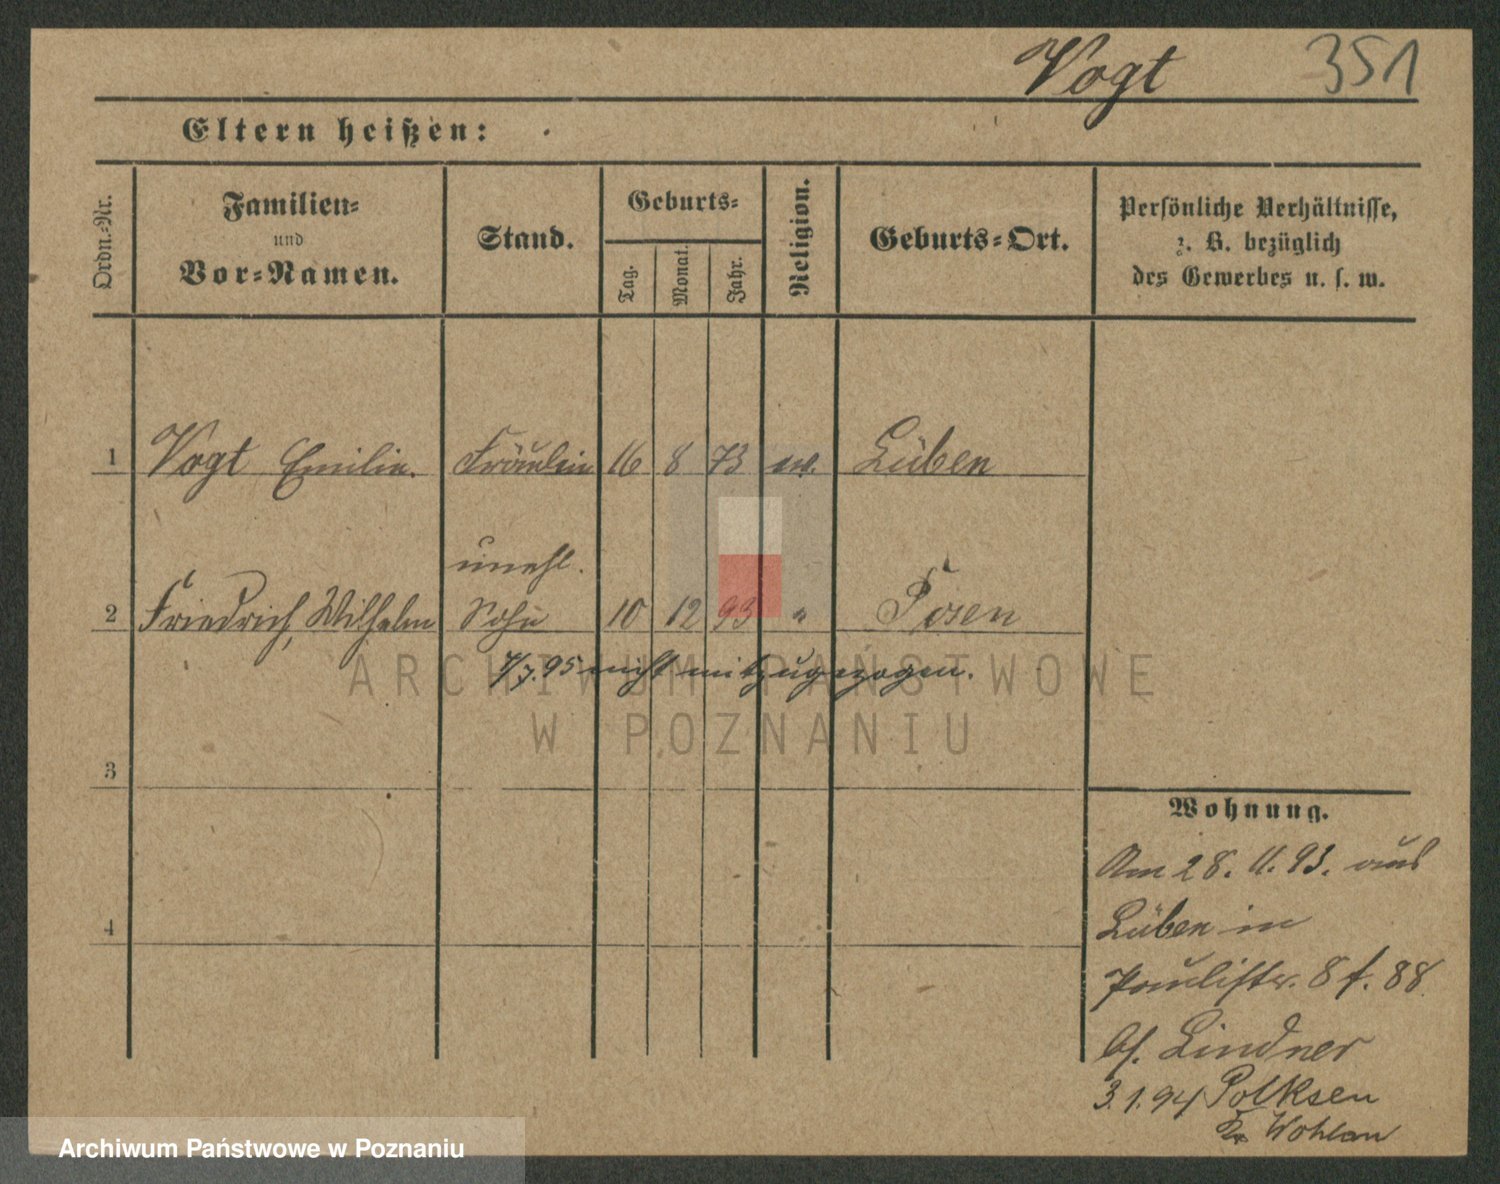 Vogt 351
Eltern heißen:
Ordn.-Nr.
Familien-
und
Vor-Namen.
Stand.
Geburts-
Tag.
Monat.
Jahr.
Religion.
Geburts-Ort.
Persönliche Verhältnisse,
z. B. bezüglich
des Gewerbes u. s. w.
1 Vogt Emilie. Fräulein 16 8 73 ev. Lüben
unehl.
2 Friedrich, Wilhelm Sohn 10 12 93 " Posen
7/7.95 nicht mitzugezogen.
ARCHIWUM PAŃSTWOWE
W POZNANIU
3
4
Wohnung.
Am 28. 11. 93. aus
Lüben in
Paulistr. 8 f. 88.
Lindner
3.1.94 Polksen
Kr Wohlau
Archiwum Państwowe w Poznaniu